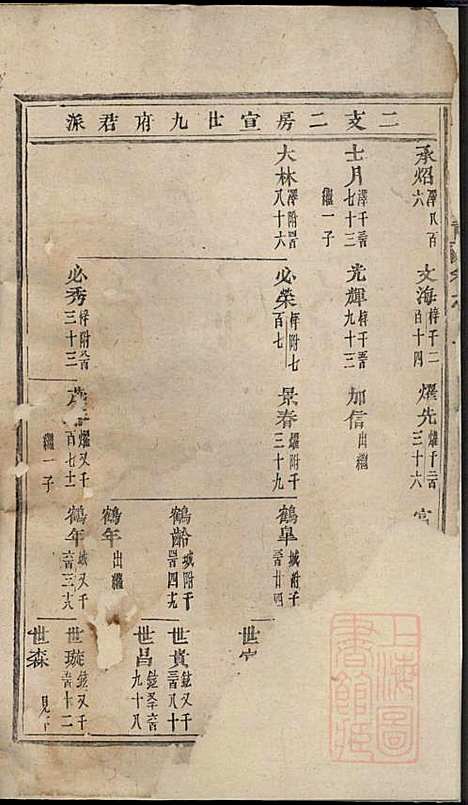 二支二房宣廿九府君派
承炤 澤八百六
文海 梓千二百十四
燿先 燿千二百三十六
士月 澤千二百七十三 繼一子
光輝 梓千二百九十三
加信 出繼
大林 澤附二百八十六
必榮 梓附七百七
景春 燿附千三十九
鶴皐 城附千二百廿四
世
必秀 梓附八百三十三
燿又千百七十一 繼一子
鶴齡 城附千二百四九
鶴年 出繼
鶴年 城又千二百三六
世貴 鉉又千三百八十
世昌 鉉又千二百九十八
世璇 鉉又千十二
世森 見下
上海圖書館藏